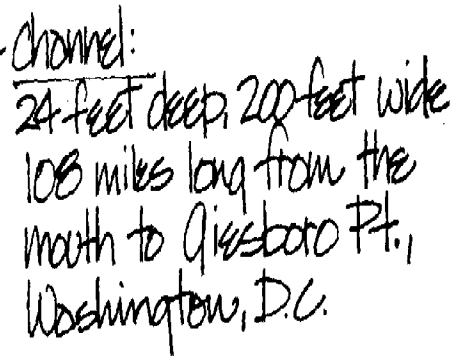 - Channel:
24 feet deep, 200 feet wide
108 miles long from the
mouth to Giesboro Pt.,
Washington, D.C.